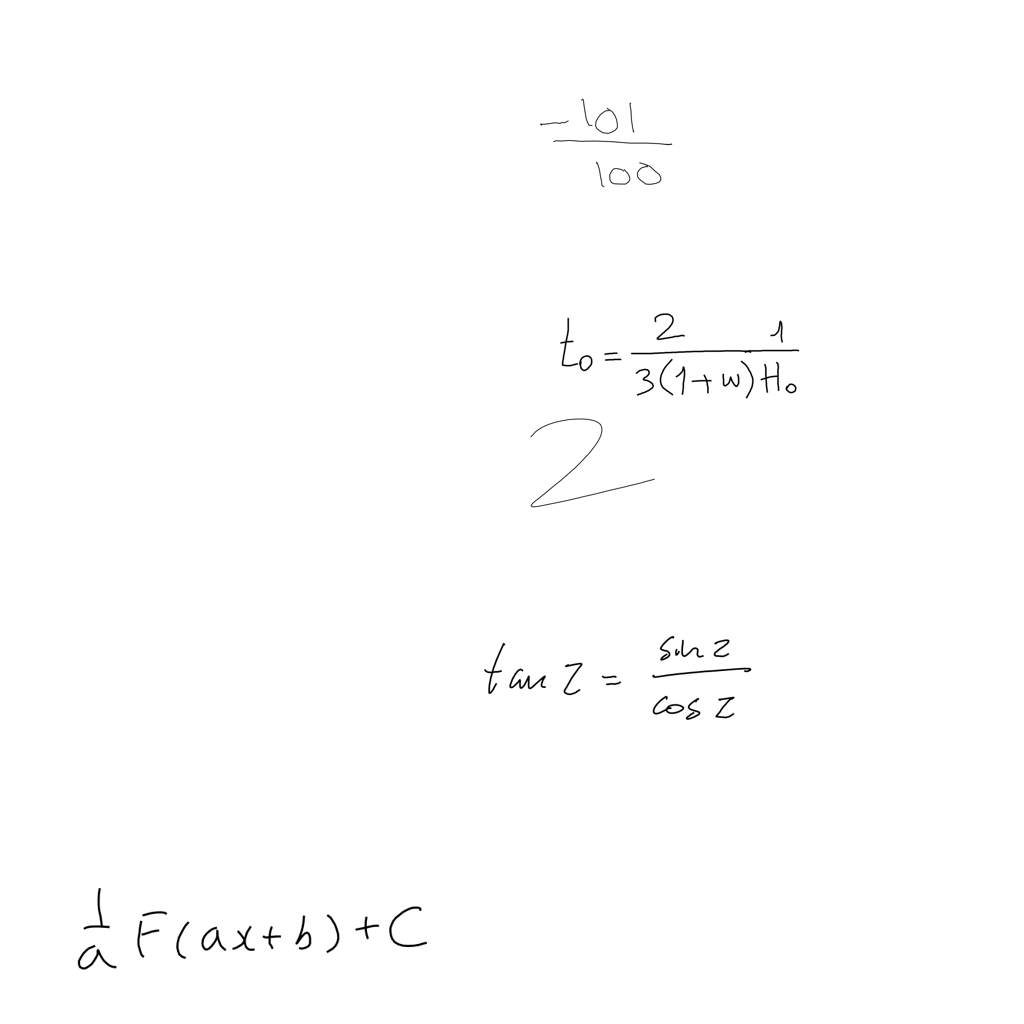 \frac{-101}{100}
t_0 = \frac{2}{3(1+w)} \frac{1}{H_0}
2
\tan z = \frac{\sin z}{\cos z}
\frac{1}{a} F(ax+b)+C